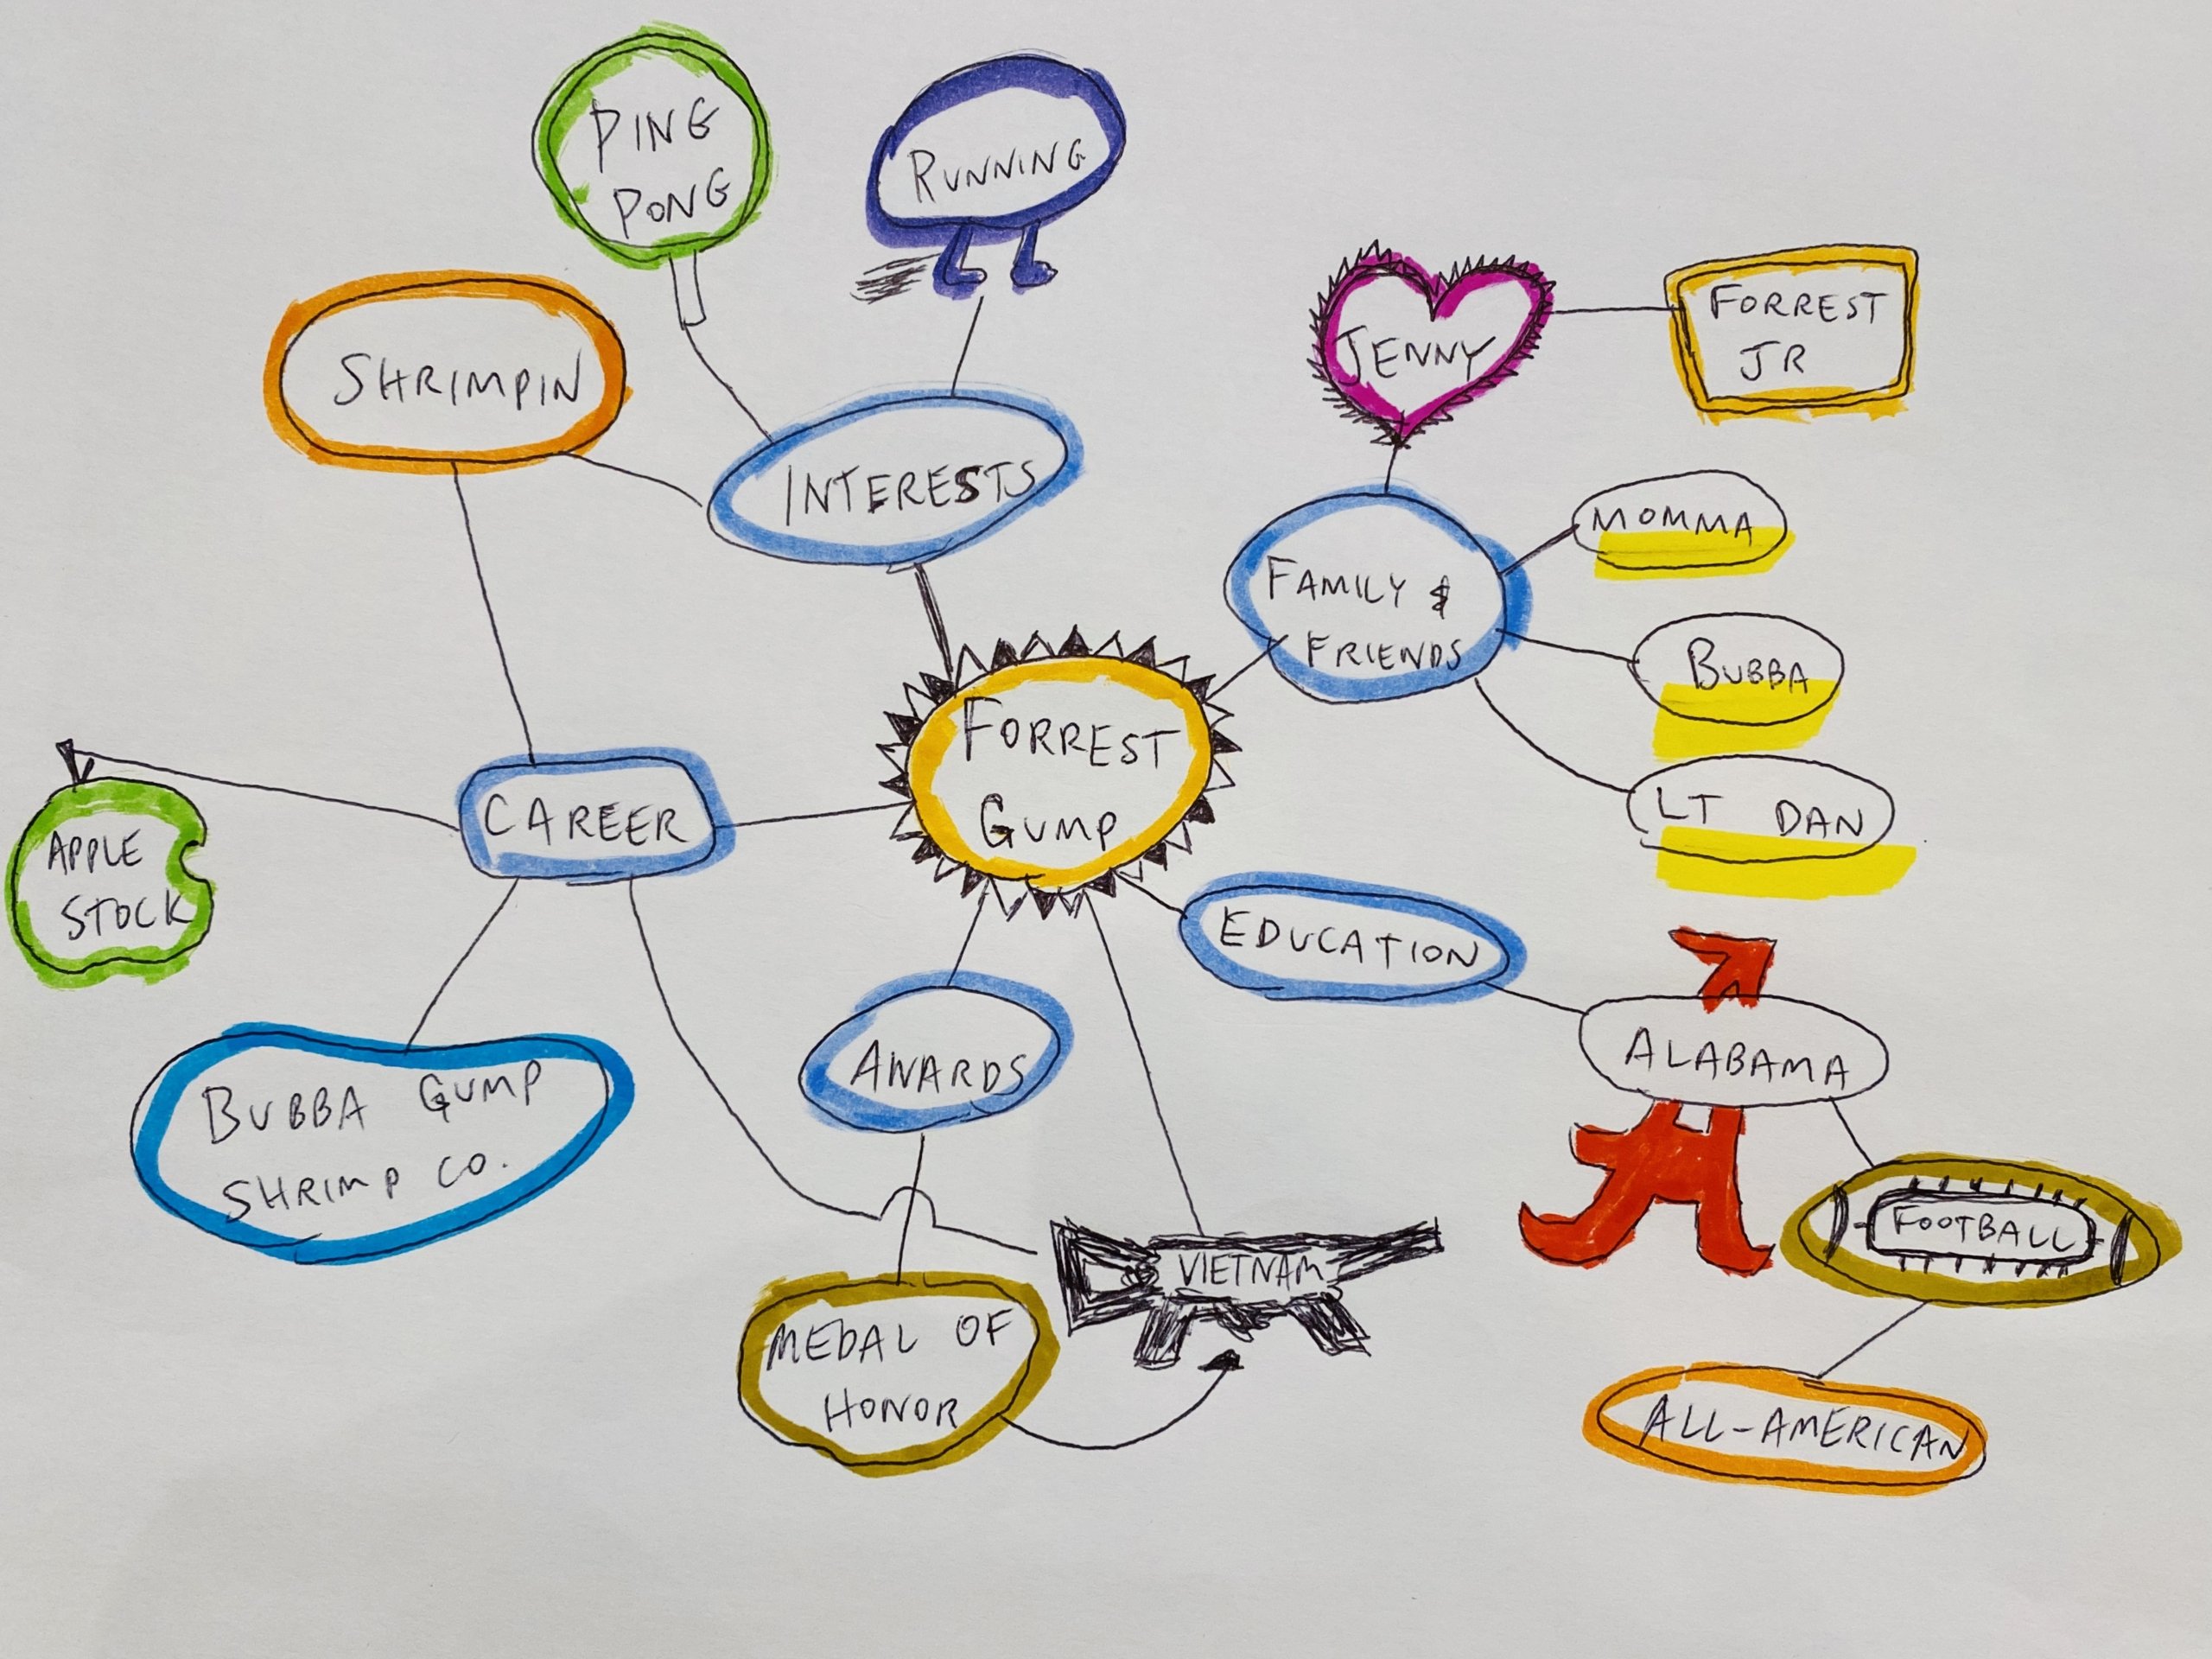 PING
PONG
RUNNING
SHRIMPIN
INTERESTS
JENNY
FORREST
JR
MOMMA
FAMILY &
FRIENDS
BUBBA
LT DAN
FORREST
GUMP
CAREER
APPLE
STOCK
EDUCATION
ALABAMA
AWARDS
BUBBA GUMP
SHRIMP CO.
FOOTBALL
VIETNAM
MEDAL OF
HONOR
ALL-AMERICAN